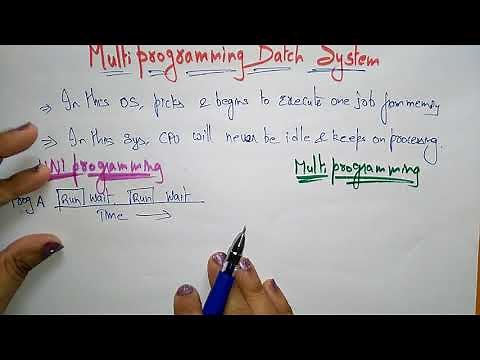 Multiprogramming Batch System
⇒ In this OS, picks & begins to execute one job from memory
⇒ In this sys, CPU will never be idle & keeps on processing.
UNI programming Multiprogramming
Prog A Run Wait Run Wait
Time →